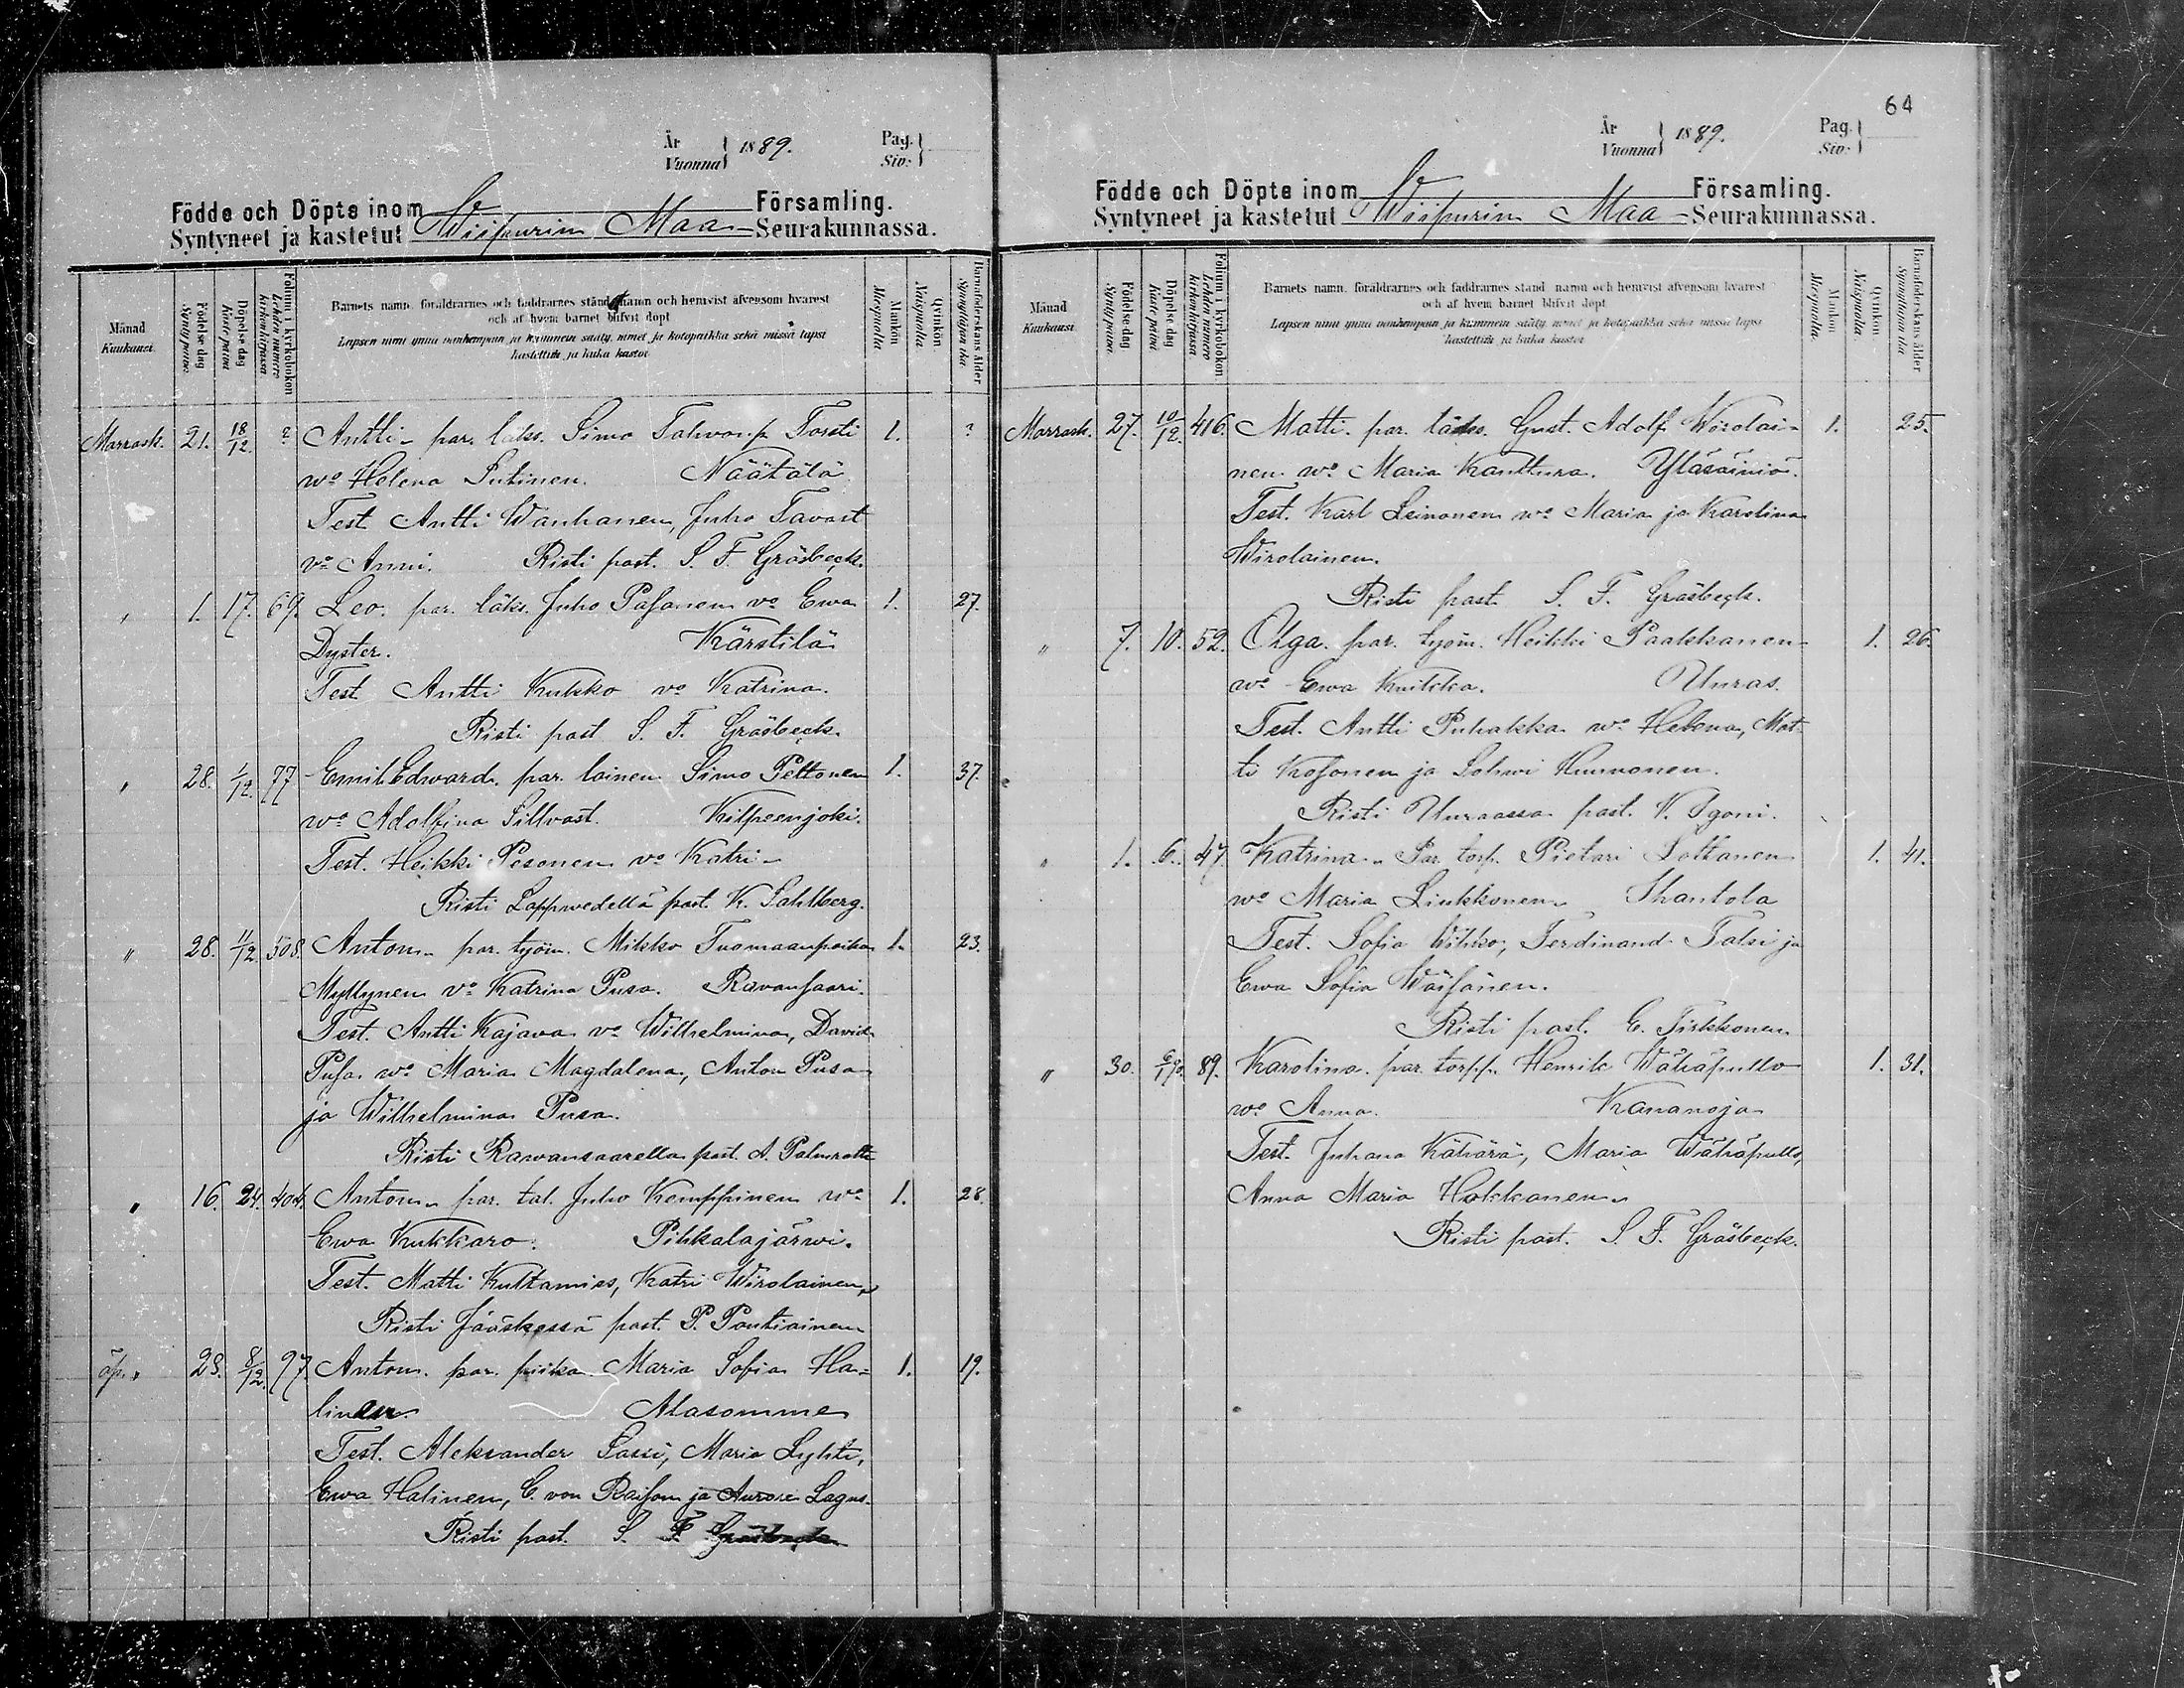 År
Vuonna } 1889.
Pag.
Siv. }
Födde och Döpte inom
Syntyneet ja kastetut Wiipurin Maa
Församling.
Seurakunnassa.
Månad
Kuukausi.
Födelse dag
Syntypäivä.
Döpelse dag
Kaste päivä
Folium i kyrkoboken
Lehden numero
kirkonkirjassa
Barnets namn, föräldrarnes och faddrarnes stånd, namn och hemvist äfvensom hvarest
och af hvem barnet blifvit döpt
Lapsen nimi ynnä vanhempain ja kummein sääty, nimet ja kotopaikka sekä missä lapsi
kastettiin ja kuka kastoi
Mankön
Miespuolia
Qvinkön.
Naispuolia
Barnaföderskans ålder
Synnyttäjän ikä
Marrask. 21. 18/12. ? Antti - par. läks. Simo Tahvo.p. Torsti 1. ?
wo Helena Sutinen. Näätälä
Test. Antti Wanhanen, Juho Tavast
vo Anni. Risti past. S. F. Gräsbeck.
" 1. 17. 69. Leo. par. läks. Juho Pasonen vo Ewa 1. 27.
Dyster. Kärstilä
Test. Antti Kukko vo Katrina.
Risti past S. F. Gräsbeck.
" 28. 1/12. 77 Emil Edward. par. lainen Simo Peltonen 1. 37.
wo Adolfina Sillvast. Kilpeenjoki.
Test. Heikki Pesonen vo Katri -
Risti Lappwedellä past. K. Sahlberg.
" 28. 11/12. 508. Anton. par. työm. Mikko Tuomaanpoika 1. 23.
Myllynen vo Katrina Pusa. Ravansaari.
Test. Antti Kajava vo Wilhelmina, David
Pusa wo Maria Magdalena, Anton Pusa
ja Wilhelmina Pusa.
Risti Rawansaarella past. A. Palmroth
" 16. 24. 404. Anton. par. tal. Juho Kemppinen wo 1. 28.
Ewa Kukkaro. Pihkalajärwi.
Test. Matti Kuttamies, Katri Wirolainen,
Risti Jääskessä past. P. Pontiainen
äp. " 23. 8/12. 97. Anton. par. piika Maria Sofia Ha-
1. 19.
linen. Alasomme
Test. Aleksander Sassi, Maria Lyhti,
Ewa Halinen, C. von Raison ja Aurore Lagus.
Risti past. S. F. Gräsbeck
64
År
Vuonna } 1889.
Pag.
Siv. }
Födde och Döpte inom
Syntyneet ja kastetut Wiipurin Maa
Församling.
Seurakunnassa.
Månad
Kuukausi.
Födelse dag
Syntypäivä.
Döpelse dag
Kaste päivä
Folium i kyrkoboken.
Lehden numero
kirkonkirjassa
Barnets namn, föräldrarnes och faddrarnes stånd, namn och hemvist äfvensom hvarest
och af hvem barnet blifvit döpt
Lapsen nimi ynnä vanhempain ja kummein sääty, nimet ja kotopaikka sekä missä lapsi
kastettiin ja kuka kastoi
Mankön
Miespuolia.
Qvinkön.
Naispuolia
Barnaföderskans ålder
Synnyttäjän ikä
Marrask. 27. 10/12. 416. Matti. par. läks. Gust. Adolf Wirolai- 1. 25.
nen wo Maria Kanttura. Yläsäiniö.
Test. Karl Leinonen wo Maria ja Karolina
Wirolainen.
Risti past. S. F. Gräsbeck.
" 7. 10. 52. Olga. par. työm. Heikki Paakkanen 1. 26.
wo Ewa Kuikka. Uuras.
Test. Antti Puhakka wo Helena, Mat-
ti Kosonen ja Sohwi Hunvonen.
Risti Uuraassa past. V. Ygoni.
" 1. 6. 47. Katrina. Par. torp. Pietari Lottanen 1. 41.
wo Maria Liukkonen. Ihantola
Test. Sofia Wihko, Ferdinand Talsi ja
Ewa Sofia Wäisänen.
Risti past. E. Tirkkonen
" 30. 89. Karolina. par. torpp. Henrik Wähäpullo 1. 31.
wo Anna. Kananoja
Test. Juhana Kähärä, Maria Wähäpullo,
Anna Maria Hakkanen.
Risti past. S. F. Gräsbeck.